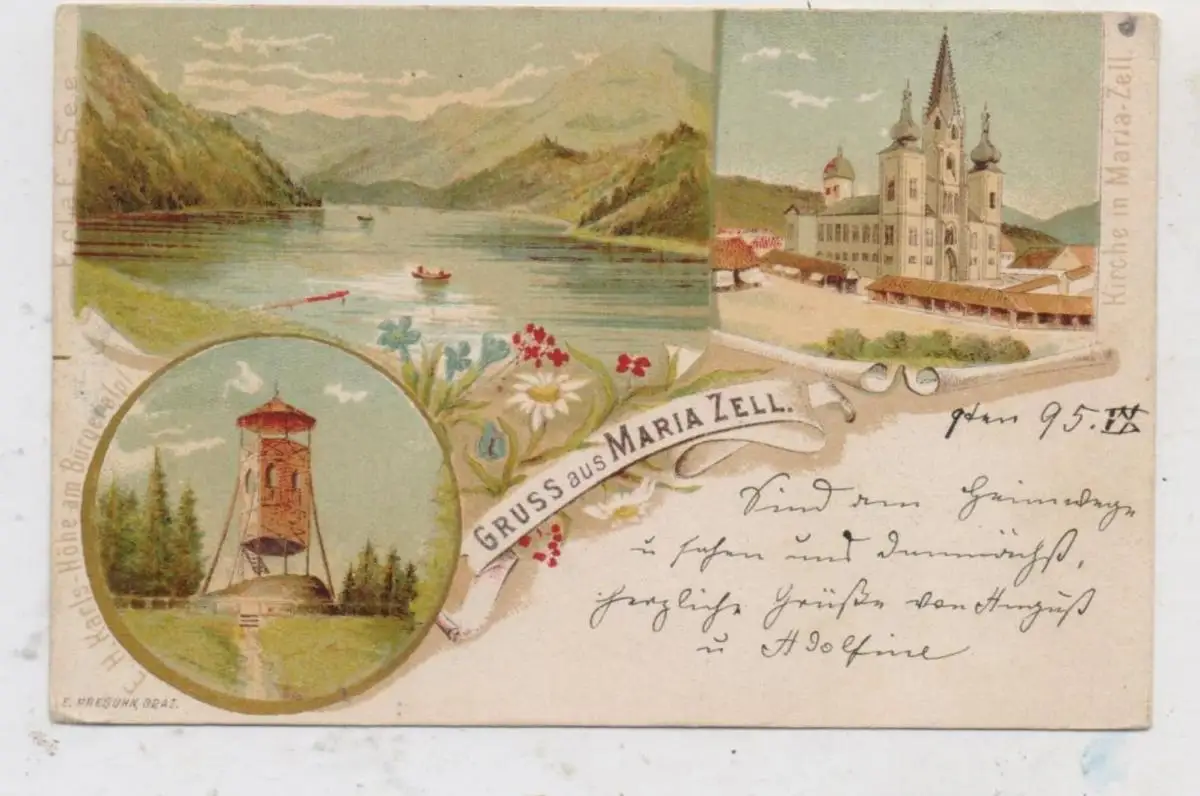 Erlaf-See.
Kirche in Maria-Zell.
E. H. Karls-Höhe am Bürgeralpl
GRUSS aus MARIA ZELL.
9ten 95. IX
Sind am Heimwege
u sehen uns demnächst,
herzliche Grüße von August
u Adolfine
E. PRESUHN, GRAZ.